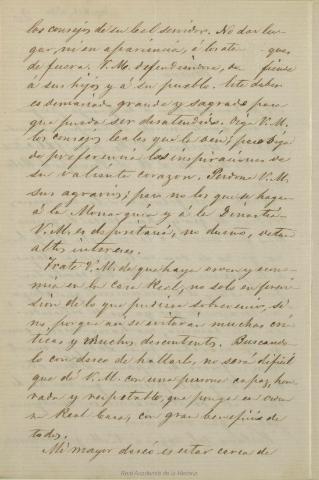 los consejos de su leal servidor. No dar lu-
gar, ni en apariencia, á los ate- ques
de fuera. V.M. defendiéndose, de fiende
á sus hijos y á su pueblo. Este deber
es demasiado grande y sagrado para
que pueda ser desatendido. Oiga V.M.
los consejos leales que le den; pero oiga
de preferencia las inspiraciones de
su valiente corazon. Perdone V.M.
sus agravios; pero no los que se hagan
á la Monarquia y á la Dinastia.
V.M. es depositaria, no dueña, de tan
altos intereses.
Trate V.M. de que haya orden y econo-
mia en la Casa Real, no solo en previ-
sión de lo que pudiera sobrevenir, si-
no, porque asi se evitarán muchas cri-
ticas y muchos descontentos. Buscando-
lo con deseo de hallarlo, no será dificil
que dé V.M. con una persona capaz, hon-
rada y respetable, que ponga en orden
su Real Casa, con gran beneficio de
todos.
Mi mayor deseo es estar cerca de
Real Academia de la Historia